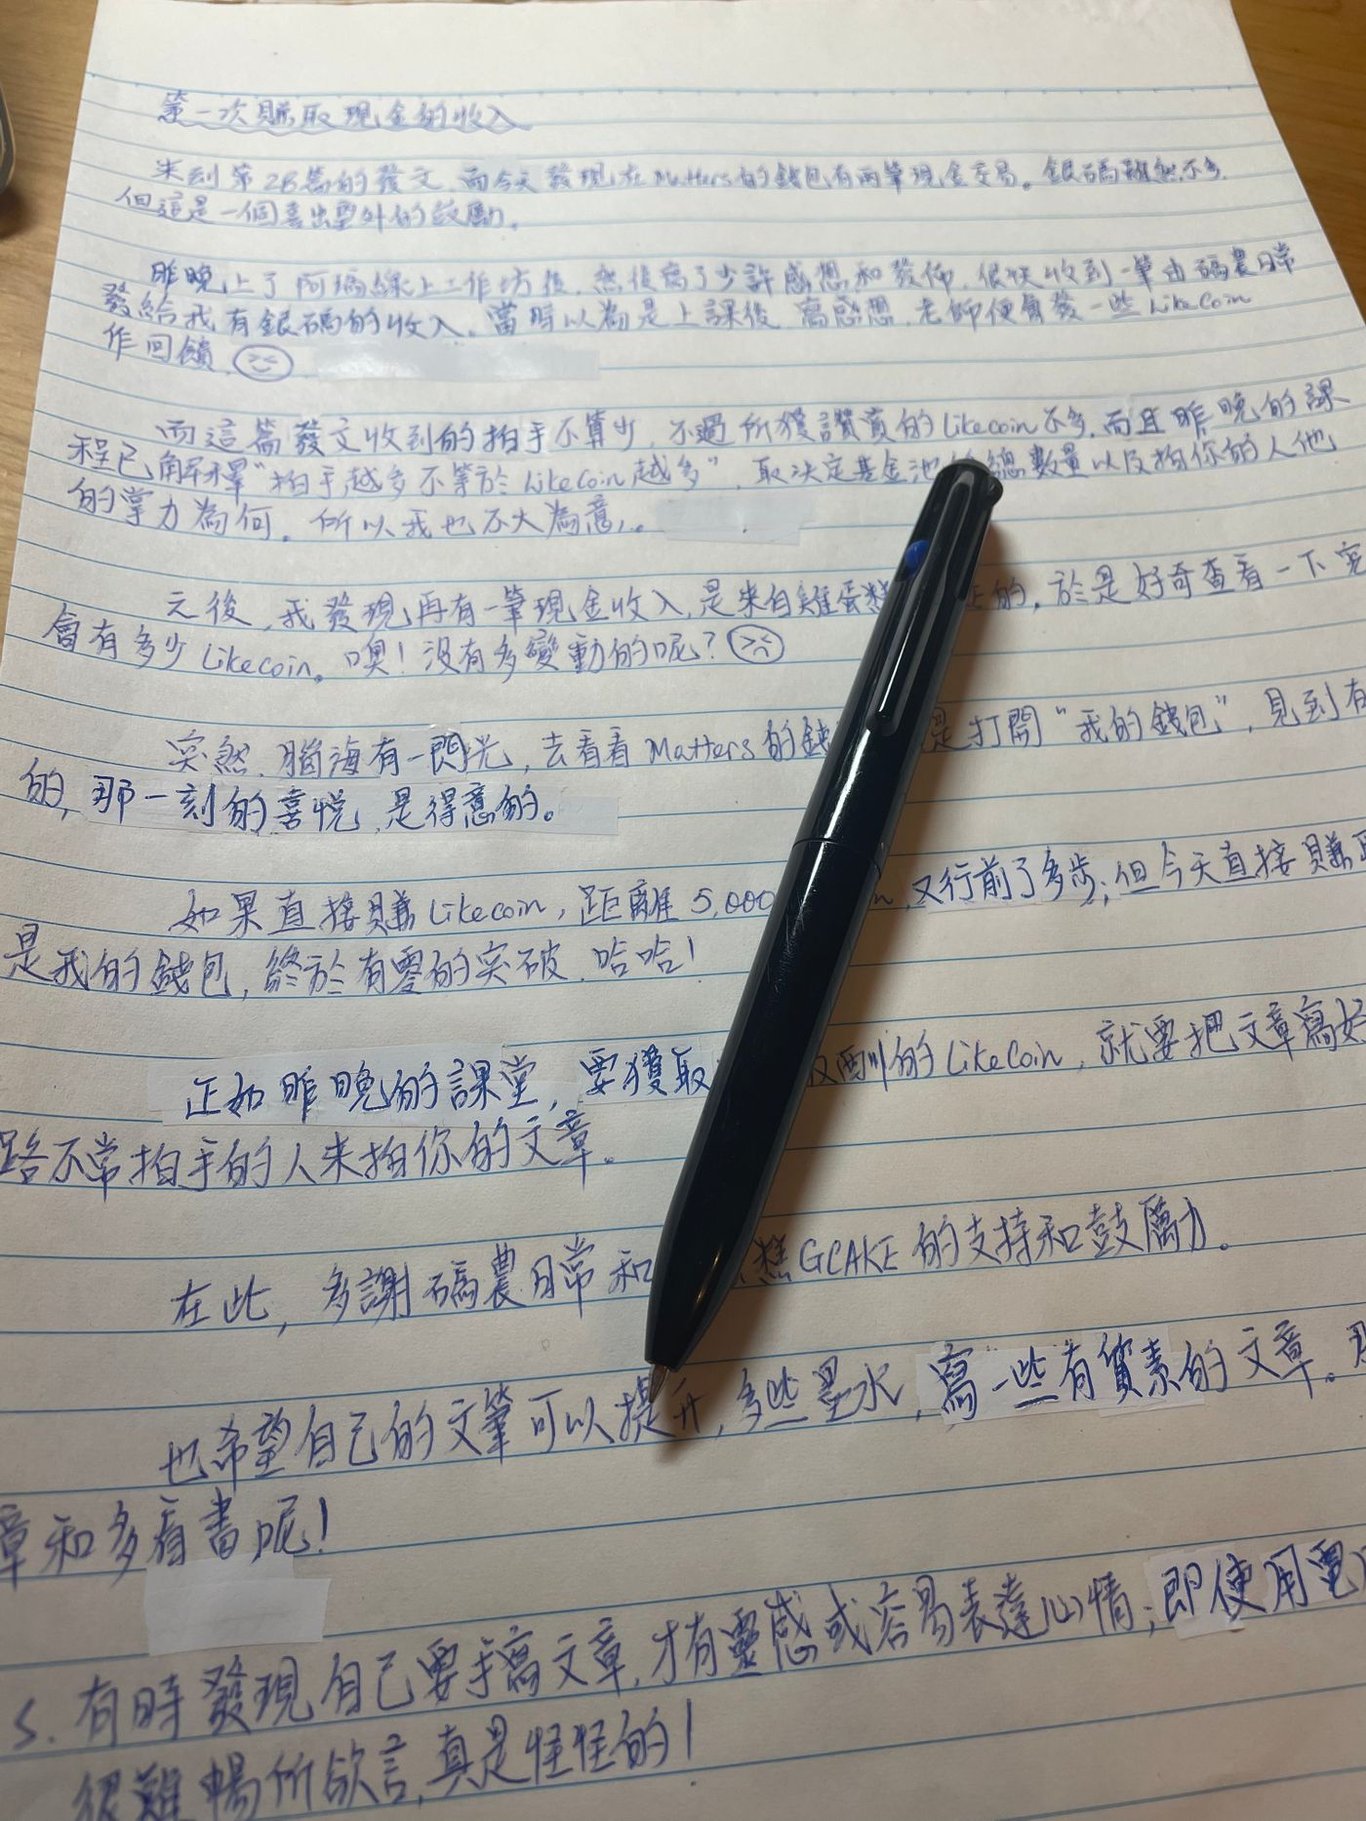 第一次賺取現金的收入
來到第28篇的發文,而今天發現在Matters的錢包有兩筆現金交易。銀碼雖然不多,
但這是一個喜出望外的鼓勵。
昨晚上了阿瑪線上工作坊後,然後寫了少許感想和發佈,很快收到一筆由碼農日常
發給我有銀碼的收入,當時以為是上課後,寫感想,老師便會發一些LikeCoin
作回饋,
而這篇發文收到的拍手不算少,不過所獲讚賞的Likecoin不多,而且昨晚的課
程已解釋"拍手越多不等於LikeCoin越多",取決定基金池 總數量以及拍你的人他
的掌力為何。所以我也不大為意。
之後,我發現再有一筆現金收入,是來自雞蛋 的,於是好奇查看一下究
會有多少Likecoin。噢!沒有多變動的呢?
突然,腦海有一閃光,去看看Matters的錢 是打開"我的錢包",見到有
的,那一刻的喜悅,是得意的。
如果直接賺Likecoin,距離5,000 n,又行前了多步;但今天直接賺
是我的錢包,終於有零的突破,哈哈!
正如昨晚的課堂,要獲取 酬的LikeCoin,就要把文章寫好
路不常拍手的人來拍你的文章。
在此,多謝碼農日常和 糕GCAKE的支持和鼓勵。
也希望自己的文筆可以提升,多些墨水,寫一些有質素的文章。
章和多看書呢!
S.有時發現自己要手寫文章,才有靈感或容易表達心情;即使用電
很難暢所欲言,真是怪怪的!